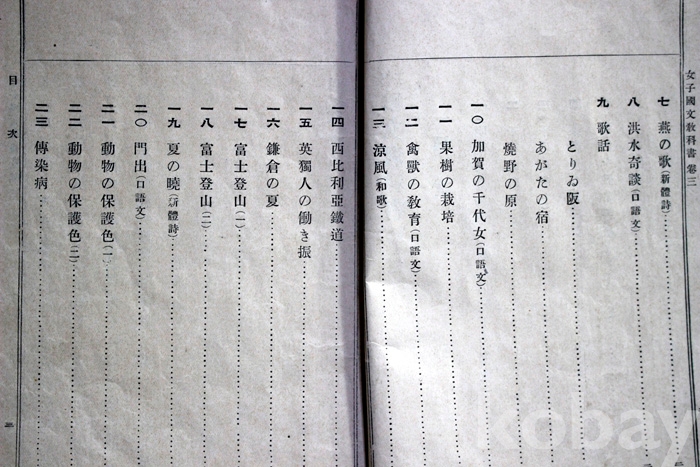 女子國文教科書 卷三
七 燕の歌(新體詩)
八 洪水奇談(口語文)
九 歌話
とりゐ阪
あがたの宿
燒野の原
一〇 加賀の千代女(口語文)
一一 果樹の栽培
一二 禽獸の教育(口語文)
一三 涼風(和歌)
一四 西比利亞鐵道
一五 英獨人の働き振
一六 鎌倉の夏
一七 富士登山(一)
一八 富士登山(二)
一九 夏の曉(新體詩)
二〇 門出(口語文)
二一 動物の保護色(一)
二二 動物の保護色(二)
二三 傳染病
目次
kobay